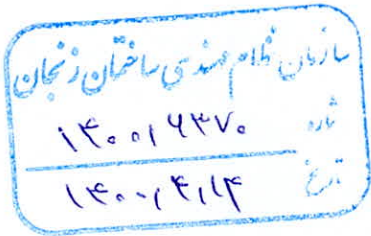 سازمان نظام مهندسی ساختمان زنجان
شماره ۱۴۰۰/۶۳۷۰
تاریخ ۱۴۰۰/۴/۱۴